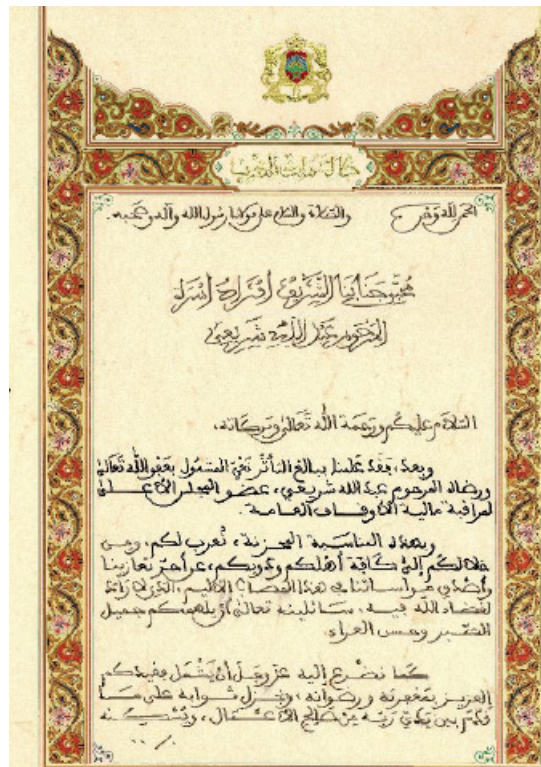 جلالة ملك المغرب
الحمد لله وحده والصلاة والسلام على مولانا رسول الله وآله وصحبه.
محبي جنابنا الشريف أفراد أسرة
المرحوم عبد الله شريفي
السلام عليكم ورحمة الله تعالى وبركاته،
وبعد، فقد علمنا ببالغ التأثر نعي المشمول بعفو الله تعالى
ورضاه المرحوم عبد الله شريفي، عضو المجلس الأعلى
لمراقبة مالية الأوقاف العامة.
وبهذه المناسبة المحزنة، نعرب لكم، ومن
خلالكم إلى كافة أهلكم وذويكم، عن أحر تعازينا
وأصدق مواساتنا في هذا المصاب الأليم، الذي لا راد
لقضاء الله فيه، سائلينه تعالى أن يلهمكم جميل
الصبر وحسن العزاء.
كما نضرع إليه عز وجل أن يشمل فقيدكم
العزيز بمغفرته ورضوانه، ويجزل ثوابه على ما
قدم بين يدي ربه من صالح الأعمال، ويسكنه